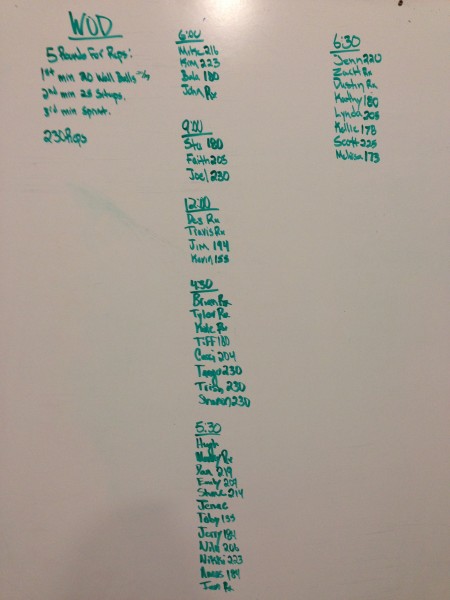 WOD
5 Rounds For Reps:
1st min 20 Wall Balls
2nd min 25 Situps.
3rd min Sprint.
230 Reps
6:00
Mike 216
Kim 223
180
John Rx
9:00
Stu 180
Faith 205
Joel 230
12:00
Des Rx
Travis Rx
Jim 194
Kevin 155
4:30
Brian Rx
Tyler Rx
Kyle Rx
Tiff 180
204
Tango 230
Trish 230
Sharon 230
5:30
Hugh
Rx
219
Emily 209
214
Jenae
Toby 155
Jerry 184
Nila 206
Nikki 223
184
Rx
6:30
Jenn 220
Zach Rx
Dustin Rx
Kathy 180
Lynda 205
Kellie 178
Scott 225
Melissa 173